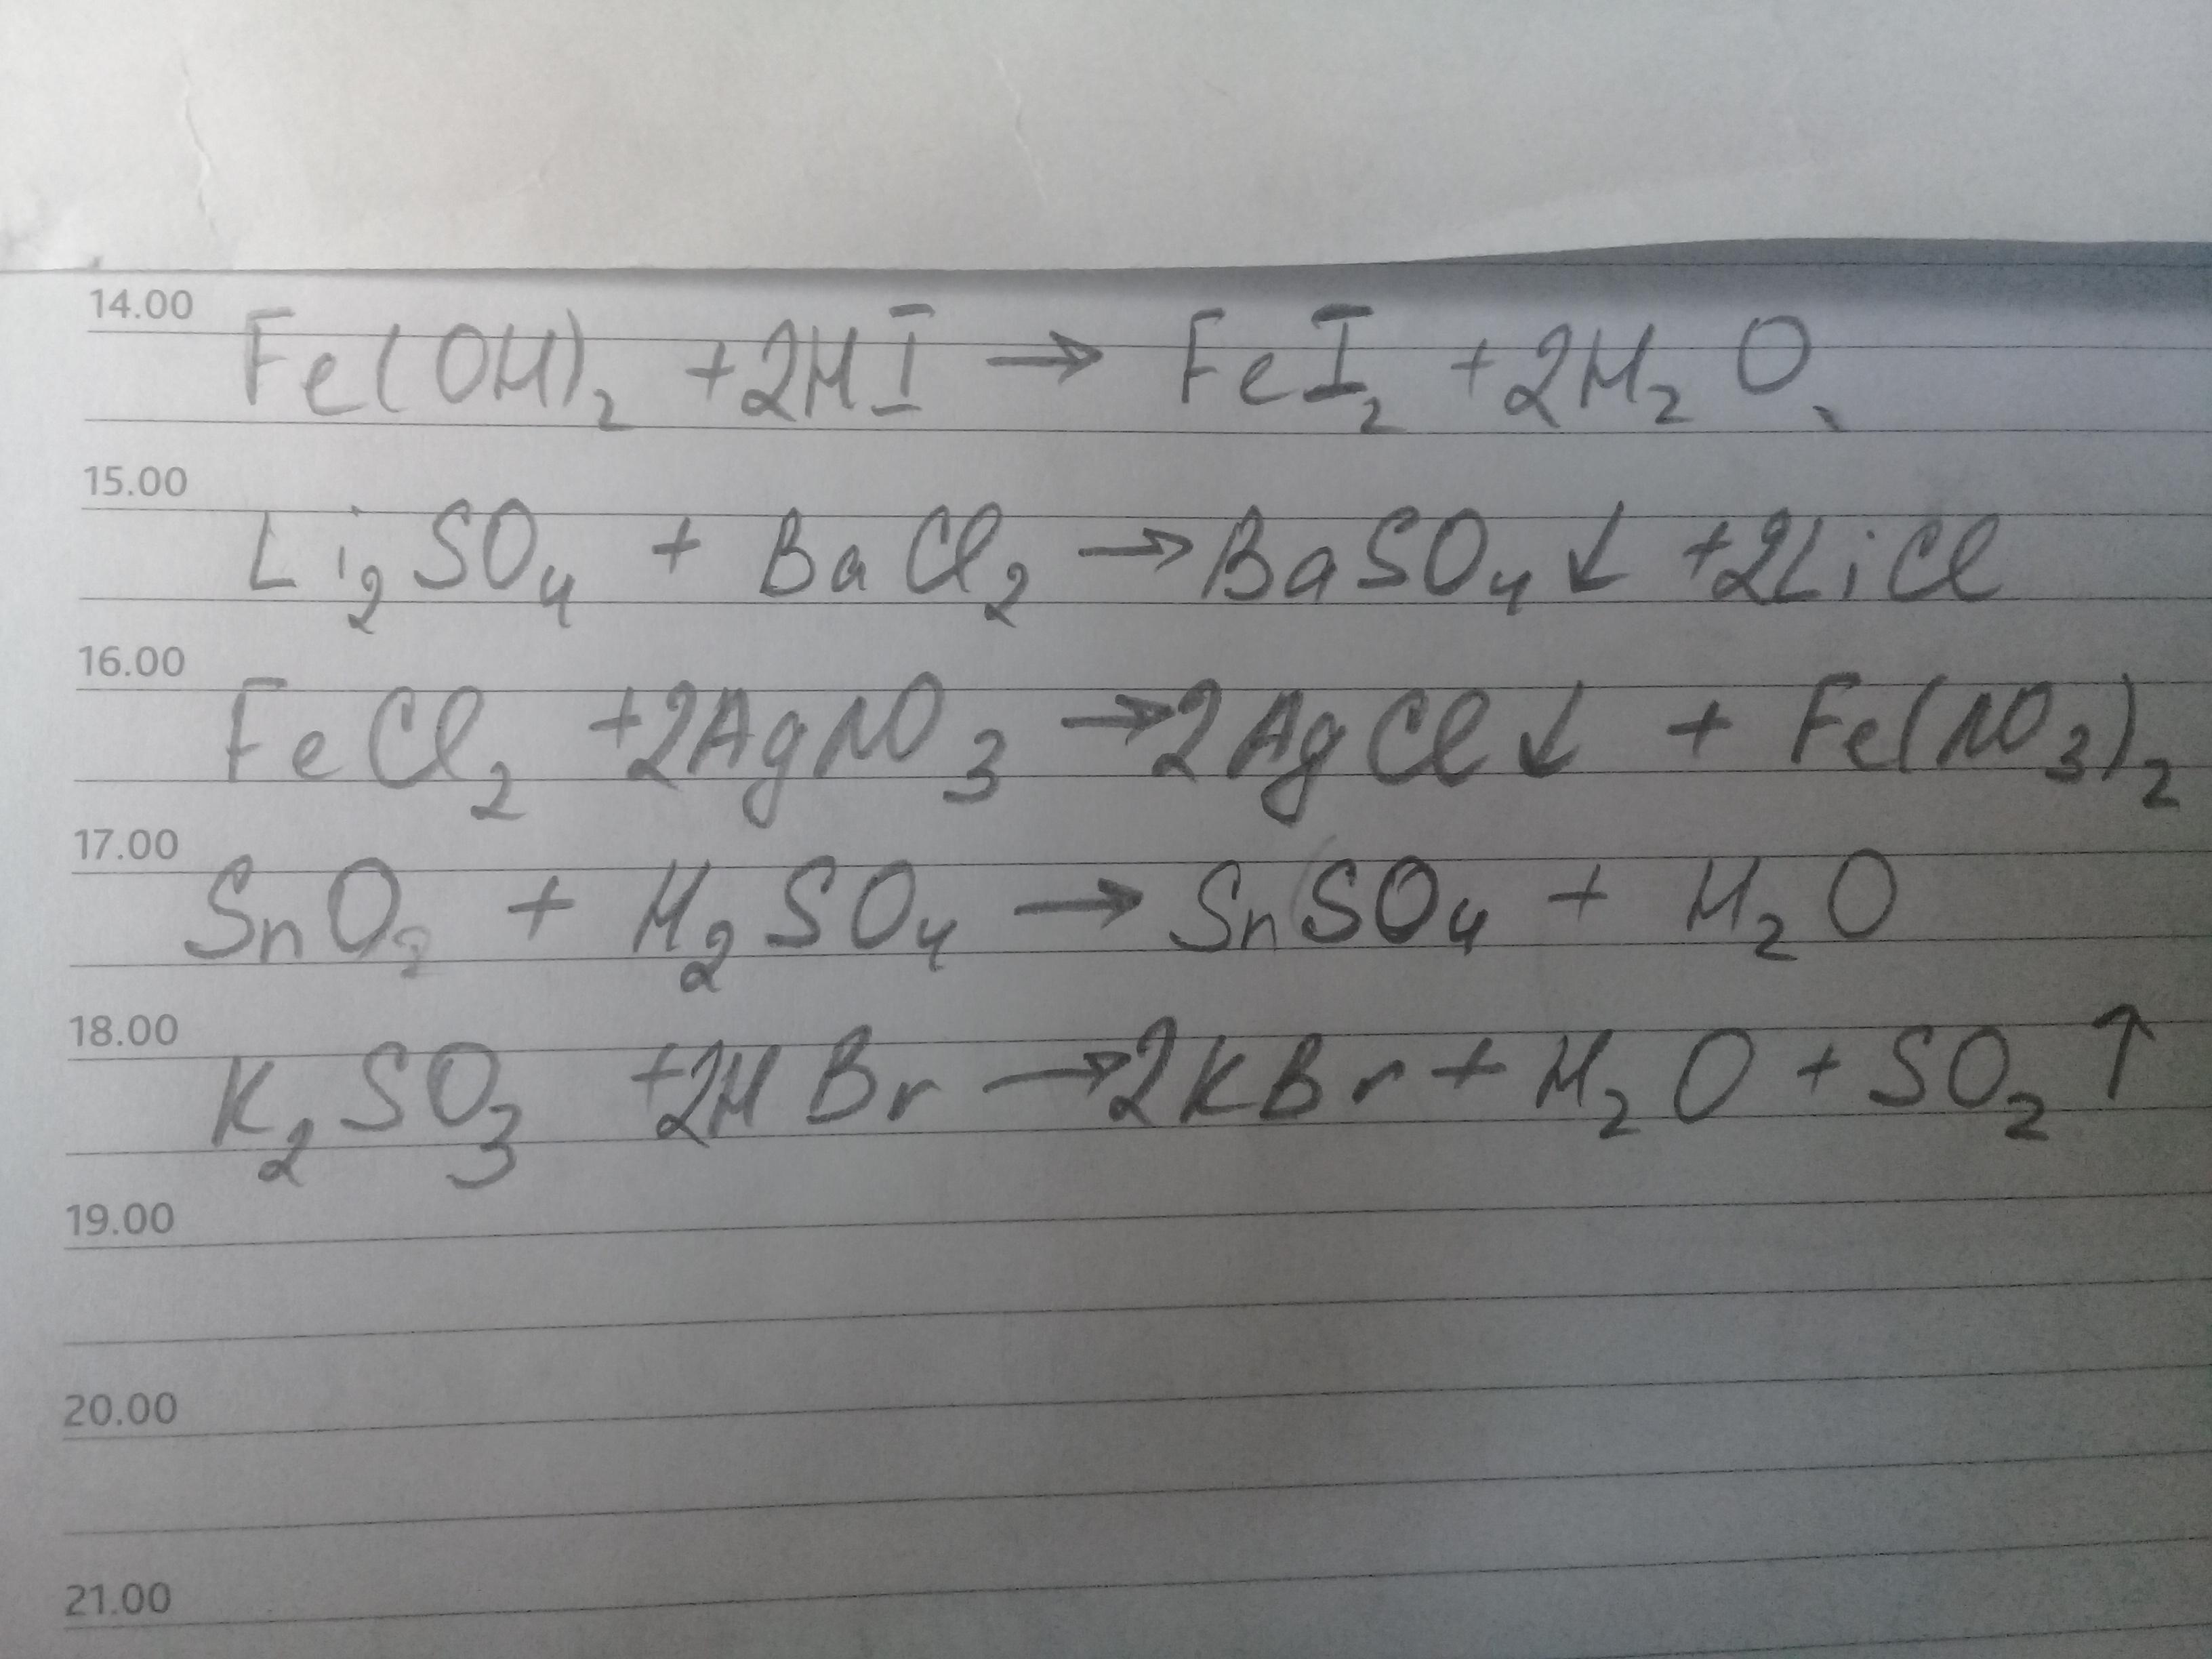 14.00 Fe(OH)₂ +2HI → FeI₂ +2H₂O
15.00 Li₂SO₄ + BaCl₂ → BaSO₄↓ +2LiCl
16.00 FeCl₂ +2AgNO₃ → 2AgCl↓ + Fe(NO₃)₂
17.00 SnO₂ + H₂SO₄ → SnSO₄ + H₂O
18.00 K₂SO₃ +2HBr → 2KBr + H₂O + SO₂↑
19.00
20.00
21.00